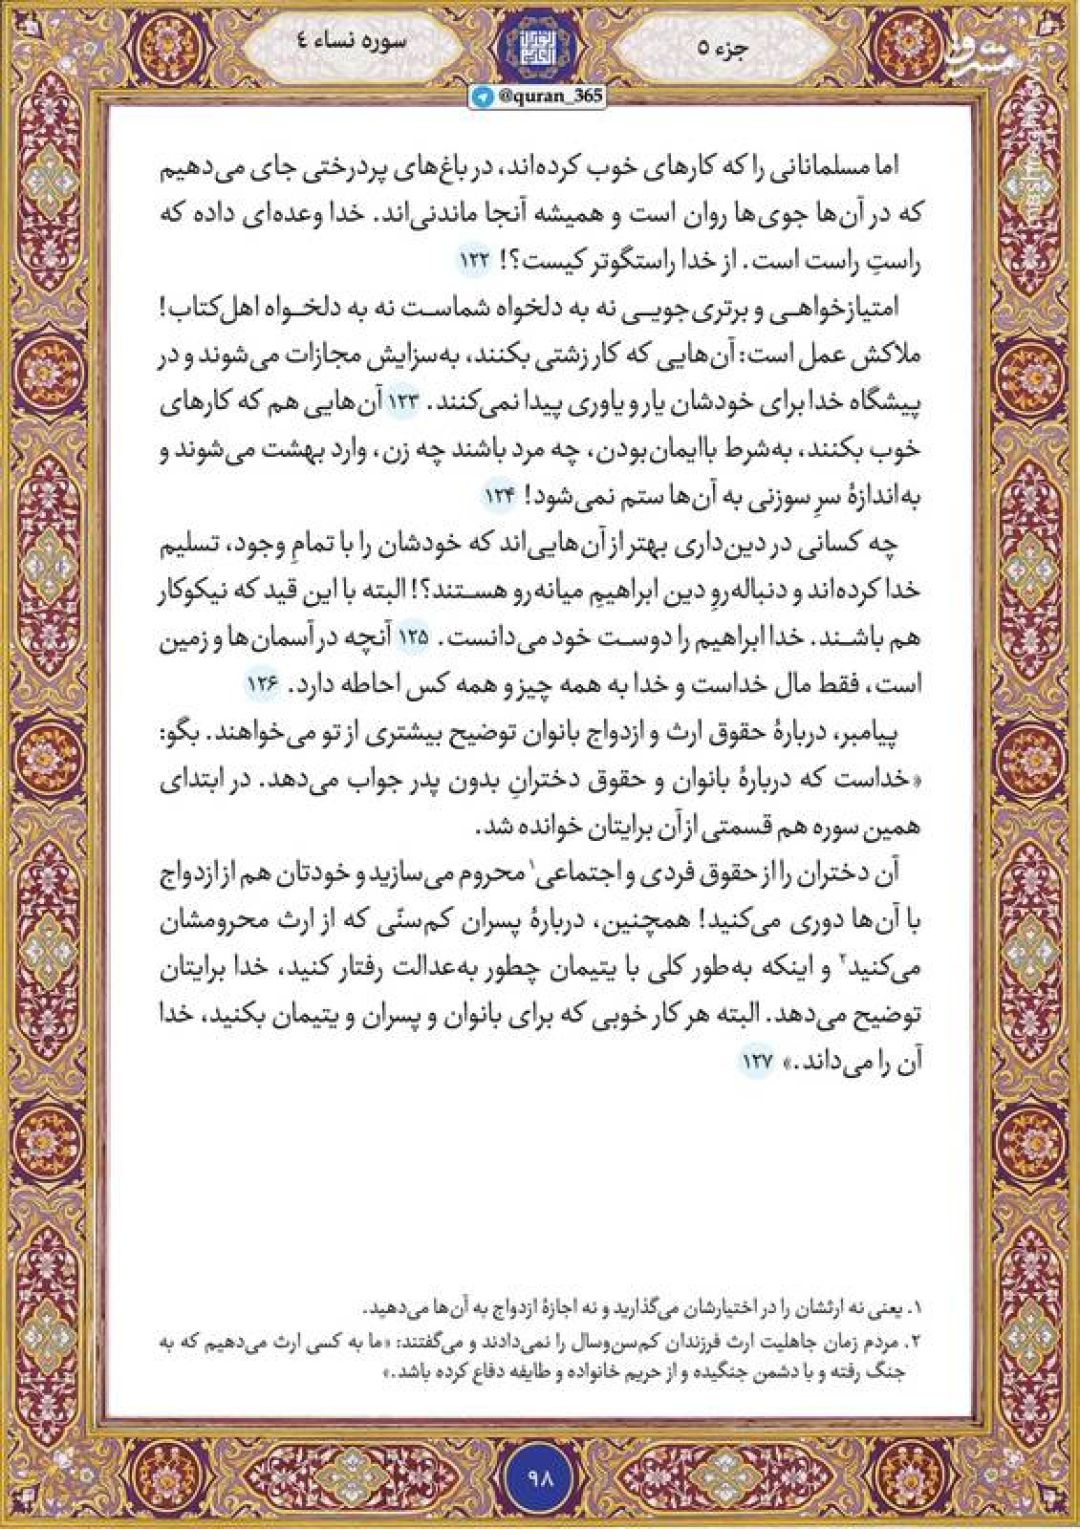 جزء ۵
سوره نساء ۴
@quran_365
اما مسلمانانی را که کارهای خوب کرده‌اند، در باغ‌های پردرختی جای می‌دهیم
که در آن‌ها جوی‌ها روان است و همیشه آنجا ماندنی‌اند. خدا وعده‌ای داده که
راستِ راست است. از خدا راستگوتر کیست؟! ۱۲۲
امتیازخواهی و برتری‌جویی نه به دلخواه شماست نه به دلخواه اهل‌کتاب!
ملاکش عمل است: آن‌هایی که کار زشتی بکنند، به‌سزایش مجازات می‌شوند و در
پیشگاه خدا برای خودشان یار و یاوری پیدا نمی‌کنند. ۱۲۳ آن‌هایی هم که کارهای
خوب بکنند، به‌شرط باایمان‌بودن، چه مرد باشند چه زن، وارد بهشت می‌شوند و
به‌اندازهٔ سرِ سوزنی به آن‌ها ستم نمی‌شود! ۱۲۴
چه کسانی در دین‌داری بهتر از آن‌هایی‌اند که خودشان را با تمامِ وجود، تسلیم
خدا کرده‌اند و دنباله‌روِ دین ابراهیمِ میانه‌رو هستند؟! البته با این قید که نیکوکار
هم باشند. خدا ابراهیم را دوست خود می‌دانست. ۱۲۵ آنچه در آسمان‌ها و زمین
است، فقط مال خداست و خدا به همه چیز و همه کس احاطه دارد. ۱۲۶
پیامبر، دربارهٔ حقوق ارث و ازدواج بانوان توضیح بیشتری از تو می‌خواهند. بگو:
«خداست که دربارهٔ بانوان و حقوق دخترانِ بدون پدر جواب می‌دهد. در ابتدای
همین سوره هم قسمتی از آن برایتان خوانده شد.
آن دختران را از حقوق فردی و اجتماعی۱ محروم می‌سازید و خودتان هم از ازدواج
با آن‌ها دوری می‌کنید! همچنین، دربارهٔ پسران کم‌سنّی که از ارث محرومشان
می‌کنید۲ و اینکه به‌طور کلی با یتیمان چطور به‌عدالت رفتار کنید، خدا برایتان
توضیح می‌دهد. البته هر کار خوبی که برای بانوان و پسران و یتیمان بکنید، خدا
آن را می‌داند.» ۱۲۷
۱. یعنی نه ارثشان را در اختیارشان می‌گذارید و نه اجازهٔ ازدواج به آن‌ها می‌دهید.
۲. مردم زمان جاهلیت ارث فرزندان کم‌سن‌وسال را نمی‌دادند و می‌گفتند: «ما به کسی ارث می‌دهیم که به
جنگ رفته و با دشمن جنگیده و از حریم خانواده و طایفه دفاع کرده باشد.»
۹۸